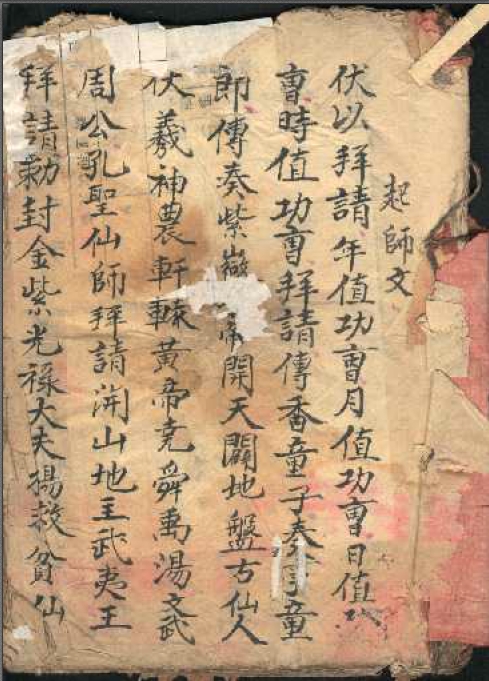 起師文
伏以拜請年值功曺月值功曺日值
曺時值功曺拜請傳香童子奏事童
即傳奏紫嶽帝開天闢地盤古仙人
伏羲神農軒轅黃帝堯舜禹湯文武
周公孔聖仙師拜請開山地主武夷王
拜請勅封金紫光祿大夫楊救貧仙